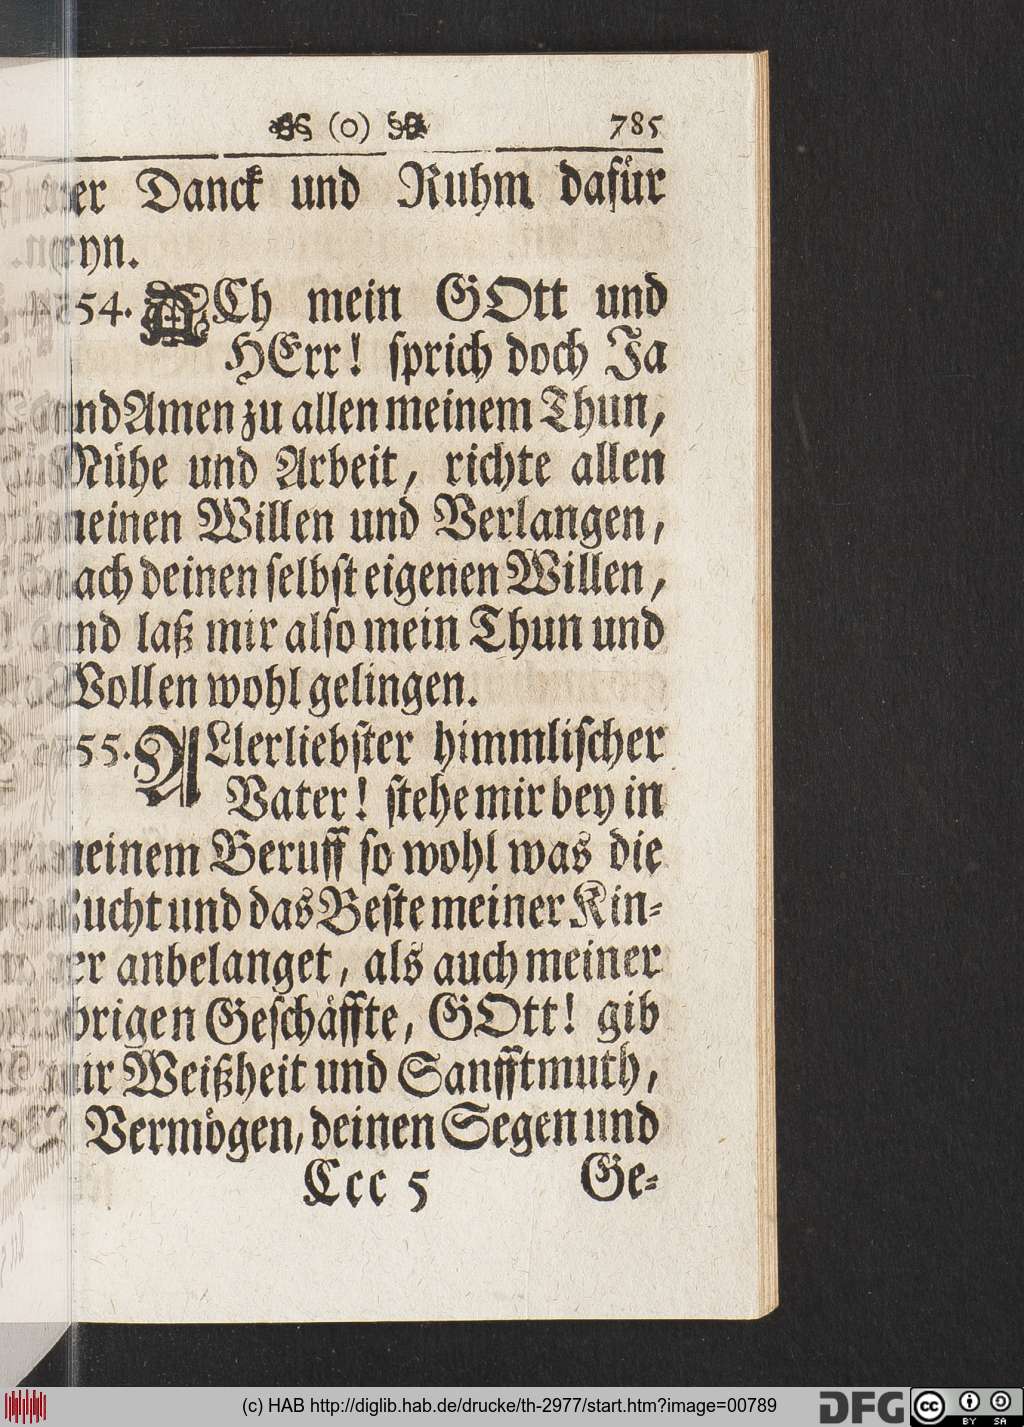 (o) 785
Danck und Ruhm dafür
54. ACh mein GOtt und
HErr! sprich doch Ja
und Amen zu allen meinem Thun,
Mühe und Arbeit, richte allen
meinen Willen und Verlangen,
nach deinen selbst eigenen Willen,
und laß mir also mein Thun und
Wollen wohl gelingen.
55. ALlerliebster himmlischer
Vater! stehe mir bey in
meinem Beruff so wohl was die
Zucht und das Beste meiner Kin-
der anbelanget, als auch meiner
übrigen Geschäffte, GOtt! gib
mir Weißheit und Sanfftmuth,
Vermögen, deinen Segen und
Ccc 5 Ge-
(c) HAB http://diglib.hab.de/drucke/th-2977/start.htm?image=00789
DFG
cc BY SA